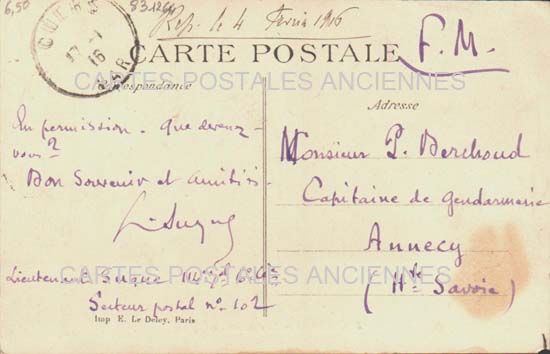 6,50
831264
Rep. le 4 Février 1916
F.M.
CARTE POSTALE
CARTES POSTALES ANCIENNES
Correspondance
Adresse
17 - 1
16
VAR
En permission. Que devenez-
vous?
Bon Souvenir et Amitiés
Lieutenant
Secteur postal n° 102
Monsieur P. Berthoud
Capitaine de Gendarmerie
Annecy
(Hte Savoie)
CARTES POSTALES ANCIENNES
Imp E. Le Deley, Paris